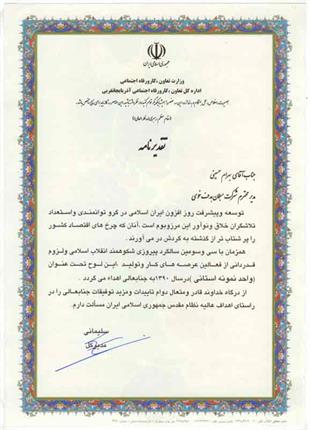 جمهوری اسلامی ایران
وزارت تعاون، کارورفاه اجتماعی
اداره کل تعاون، کارورفاه اجتماعی آذربایجانغربی
تقدیرنامه
جناب آقای بهرام حسینی
مدیر محترم شرکت
توسعه وپیشرفت روز افزون ایران اسلامی در گرو توانمندی واستعداد
تلاشگران خلاق ونوآور این مرزوبوم است .آنان که چرخ های اقتصاد کشور
را پر شتاب تر از گذشته به گردش در می آورند .
همزمان با سی وسومین سالگرد پیروزی شکوهمند انقلاب اسلامی ولزوم
قدردانی از فعالین عرصه های کار وتولید .این لوح تحت عنوان
(واحد نمونه استانی )درسال ۱۳۹۰به جنابعالی اهداء می گردد .
از درگاه خداوند قادر ومتعال دوام تاییدات ومزید توفیقات جنابعالی را در
راستای اهداف عالیه نظام مقدس جمهوری اسلامی ایران مسألت دارم.
سلیمانی
مدیرکل